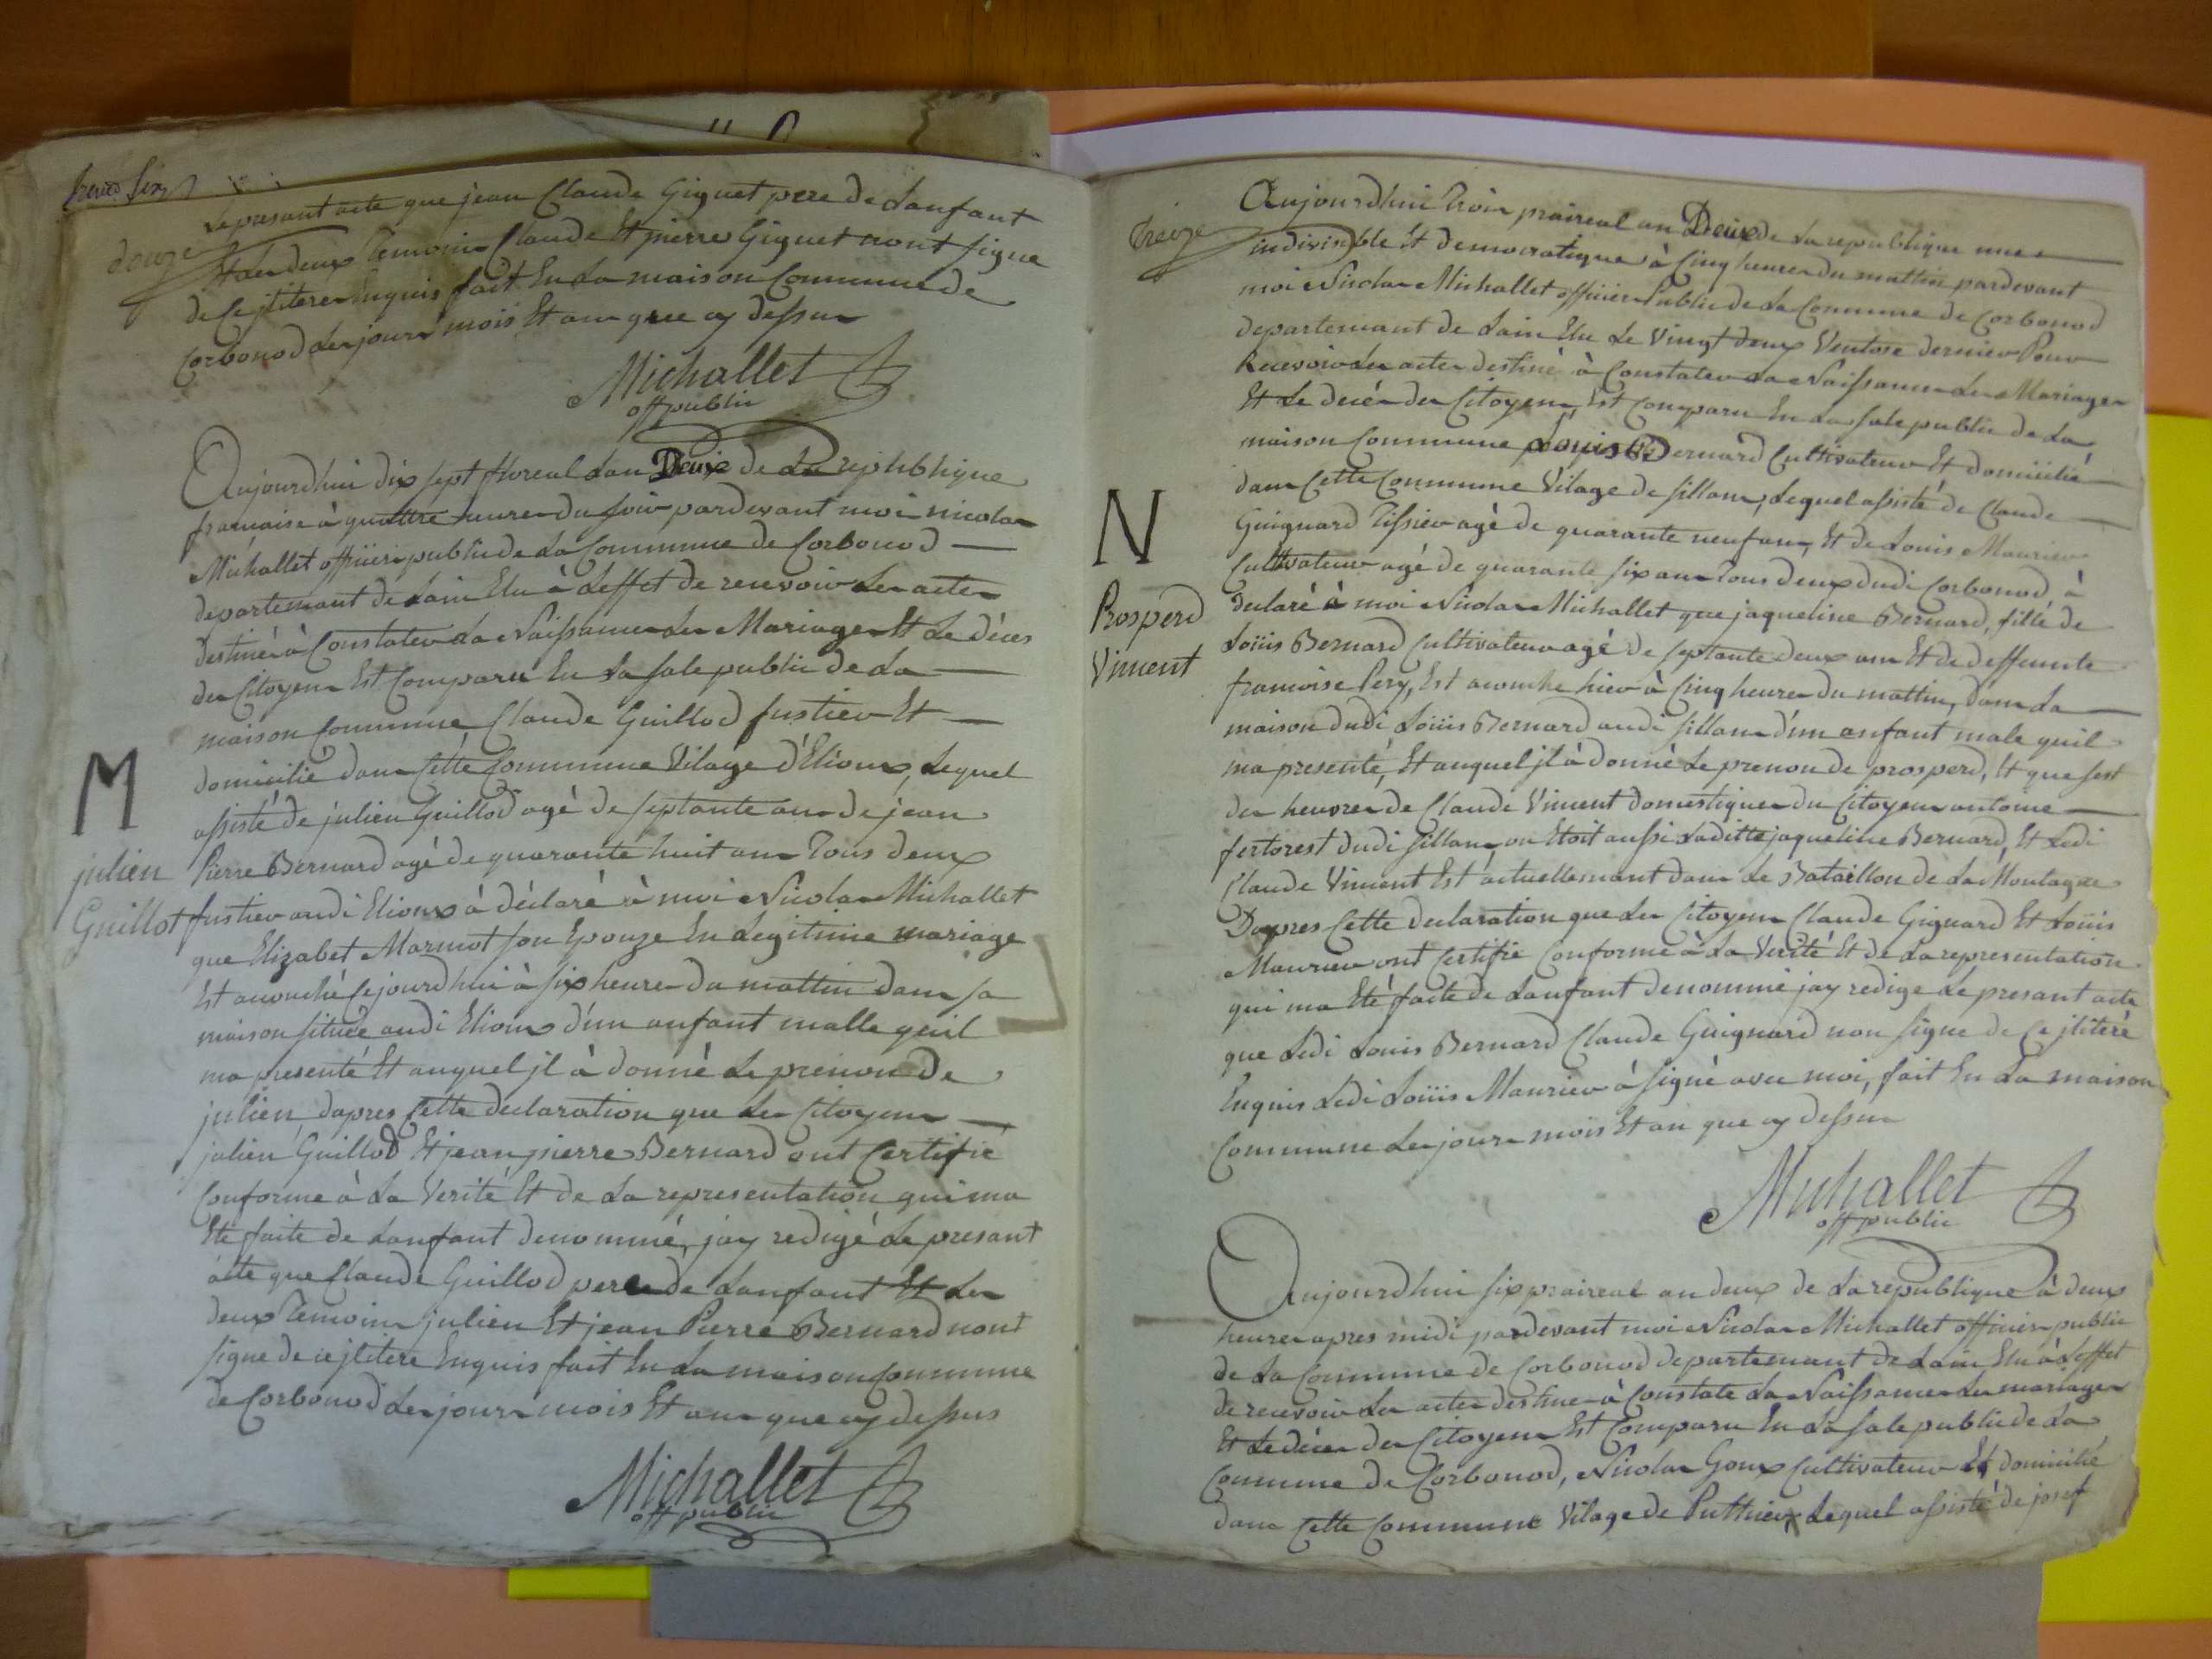 douze
Le presant acte que jean Claude Giguet pere de Lanfant
Et Les deux temoins Claude Et pierre Giguet nont signe
de Ce jlitere Enquis fait En La maison Commune de
Corbonod Les jours mois Et an que cy dessus
Michallet
off public
Aujourdhui dix sept floreal Lan Deux de La republique
française à quattre heures du soir pardevant moi nicolas
Michallet officier public de La Commune de Corbonod
departemant de Lain Elu à Leffet de recevoir Les actes
destiné à Constater La Naissance Les Mariages Et Le déces
des Citoyens Est Comparu En La sale public de La
maison Commune Claude Guillod fustier Et
domicilié dans Cette Commune Vilage d'Elioux, Lequel
assisté de julien Guillod agé de septante ans de jean
Pierre Bernard agé de quarante huit ans Tous deux
M
julien
Guillot
fustier audi Elioux à déclaré à moi Nicolas Michallet
que Elizabet Marmot son Epouze En Legitime mariage
Est acouché Cejourdhui à six heures du mattin dans sa
maison située audi Elioux d'un anfant malle quil
ma presenté Et auquel jl à donné Le prenon de
julien, dapres Cette declaration que Les Citoyens
julien Guillod Et jean pierre Bernard ont Certifié
Conforme à La Verité Et de La representation qui ma
Eté faite de Lanfant denommé, jay redigé Le presant
acte que Claude Guillod pere de Lanfant Et Les
deux Temoins julien Et jean Pierre Bernard nont
signe de ce jlitere Enquis fait En La maison Commune
de Corbonod Les jours mois Et ans que cy dessus
Michallet
off public
Treize
Aujourdhui Trois praireal an Deux de La republique une
indivisible Et democratique à Cinq heures du mattin pardevant
moi Nicolas Michallet officier Public de La Commune de Corbonod
departemant de Lain Elu Le Vingt deux Ventose dernier Pour
Recevoir Les actes destiné à Constater La Naissance Les Mariages
Et Le decés des Citoyens, Est Comparu En La sale public de La
maison Commune Louis Bernard Cultivateur Et domicilié
dans Cette Commune Vilage de sillans, Lequel assisté de Claude
Guignard Tissier agé de quarante neuf ans, Et de Louis Maurier
Cultivateur agé de quarante six ans Tous deux dudi Corbonod à
N
Prosperd
Vincent
declaré à moi Nicolas Michallet que jaqueline Bernard, fille de
Loüis Bernard Cultivateur agé de septante deux ans Et de deffeunte
francoise Pery, Est acouche hier à Cinq heures du mattin, dans La
maison dudi Loüis Bernard audi sillans d'un anfant male quil
ma presenté, Et auquel jl à donné Le prenon de prosperd, Et que sest
des heuvres de Claude Vincent domestiques du Citoyen antoine
fertorest dudi sillans, ou Etoit aussi Laditte jaqueline Bernard, Et Ledi
Claude Vincent Est actuellemant dans Le Bataillon de La Montagne
Dapres Cette declaration que Les Citoyens Claude Giguard Et Loüis
Maurier ont Certifie Conforme à La Verité Et de La representation
qui ma Eté faite de Lanfant denommé jay redige Le presant acte
que Ledi Louis Bernard Claude Guignard non signe de Ce jliteré
Enquis Ledi Loüis Maurier à signé avec moi, fait En La maison
Commune Les jours mois Et an que cy dessus
Michallet
off public
Aujourdhui six praireal an deux de La republique à deux
heures apres midi pardevant moi Nicolas Michallet officier public
de La Commune de Corbonod departemant de Lain Elu à Leffet
de recevoir Les actes destine à Constate La Naissance Les mariages
Et Le déces des Citoyens Est Comparu En La sale public de La
Commune de Corbonod, Nicolas Goux Cultivateur Et domicilié
dans Cette Commune Vilage de Puthier, Lequel assisté de josef